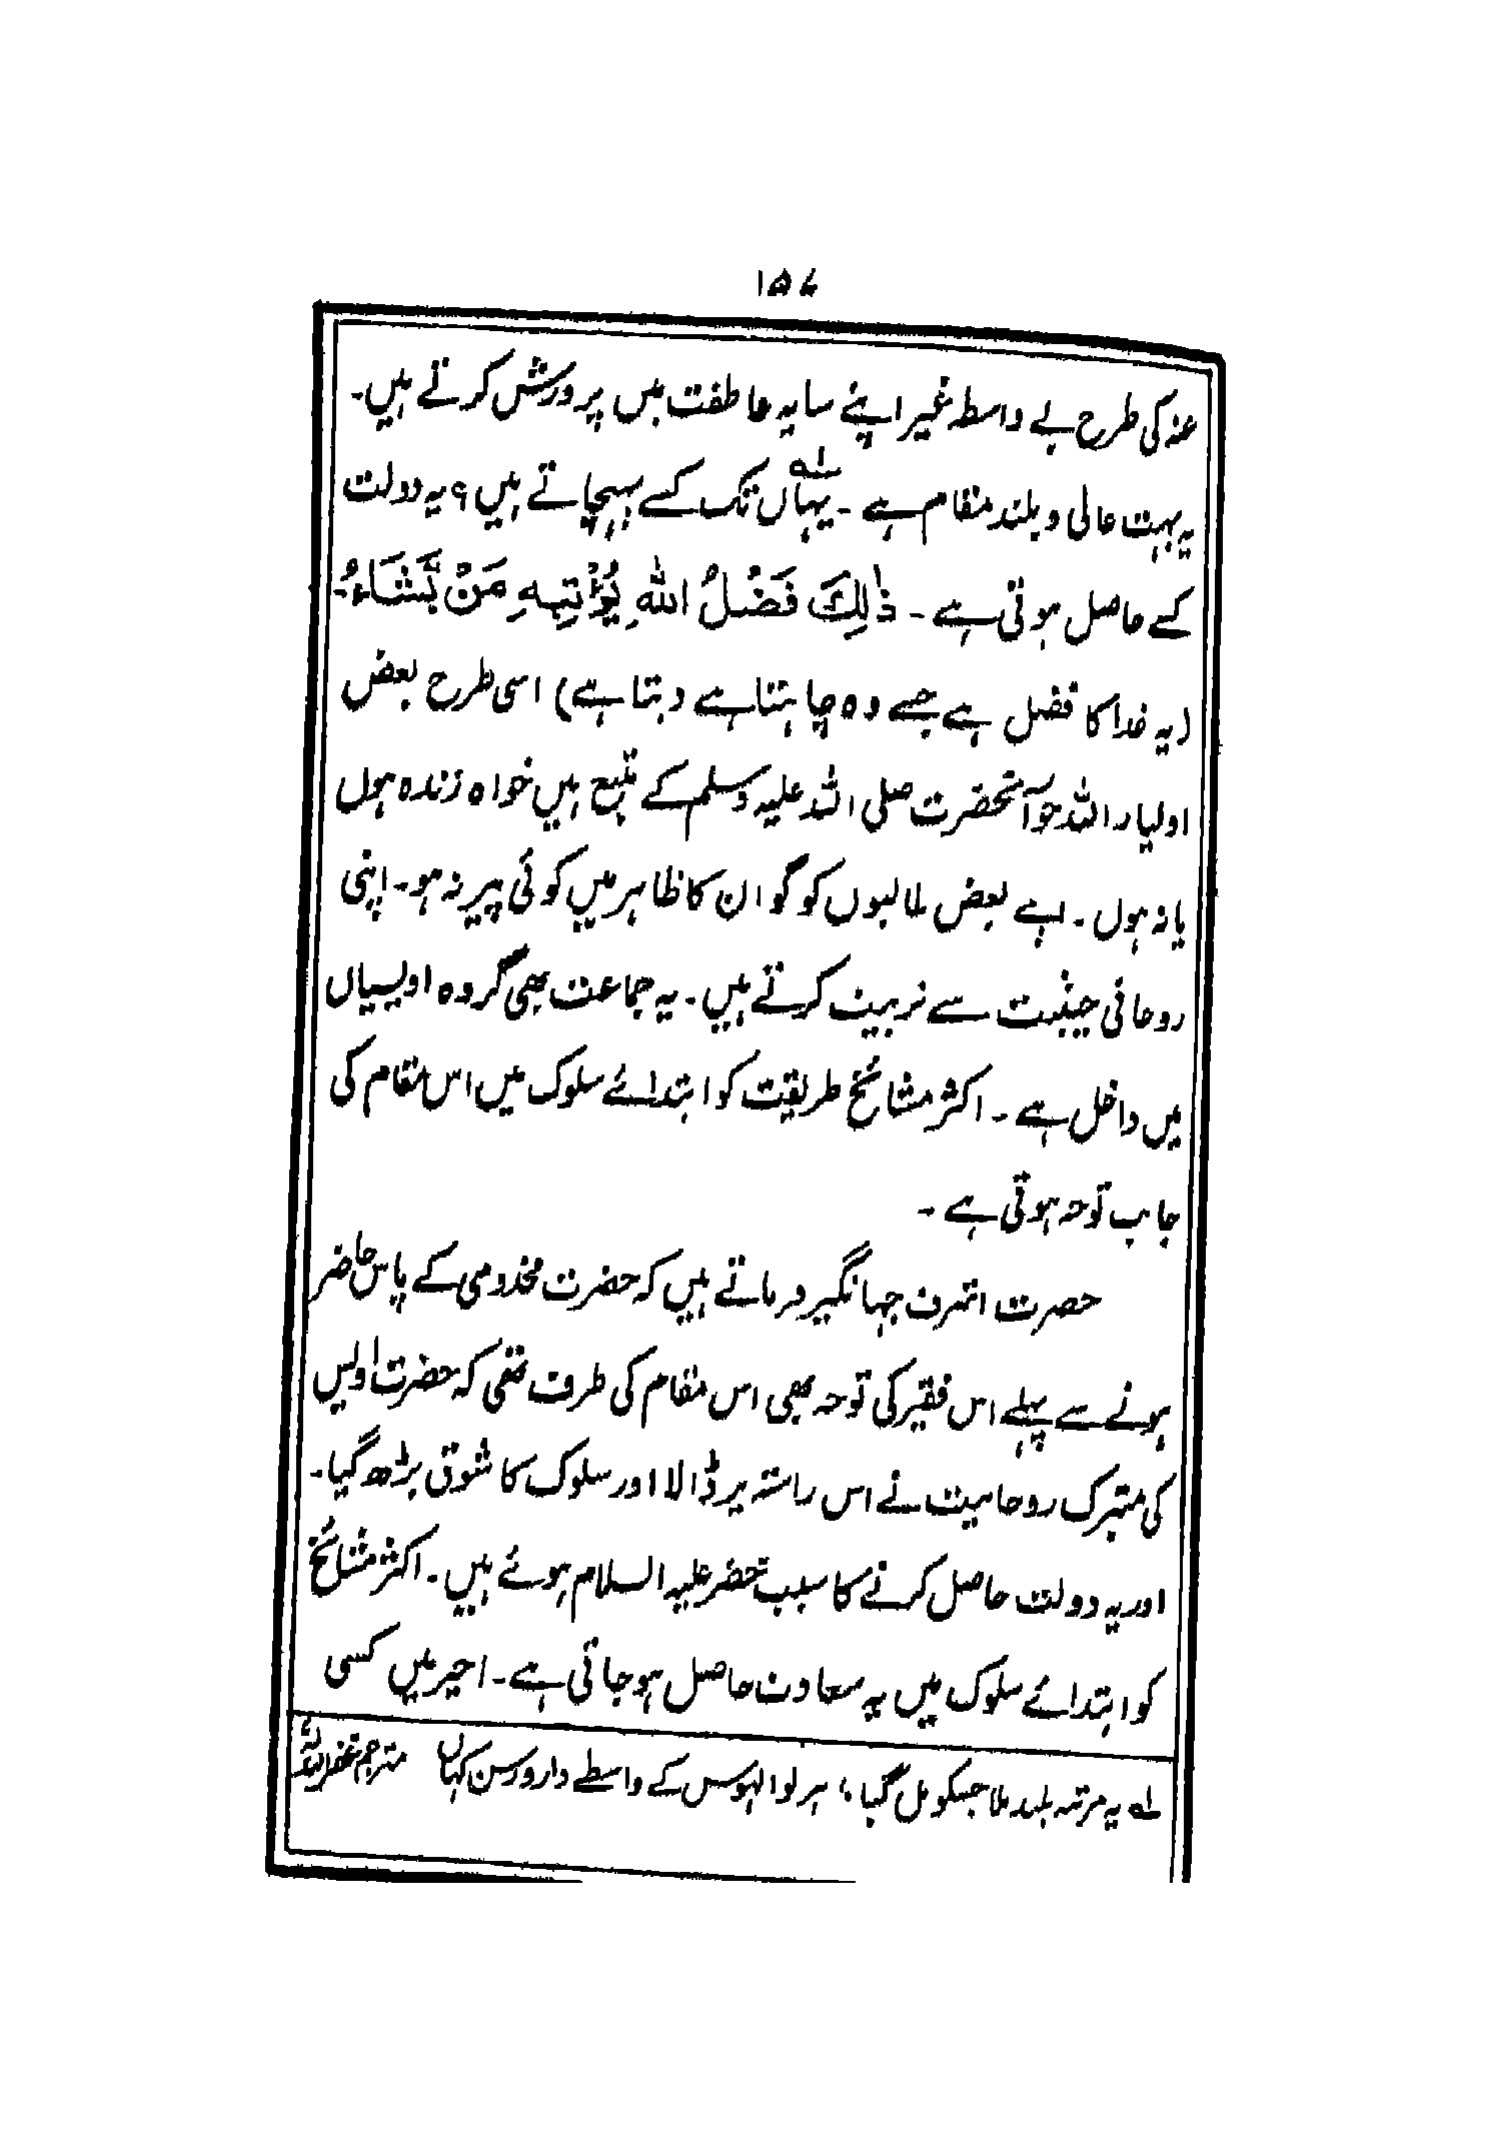 ۱۵۷
عنہ کی طرح بے واسطہ غیر اپنے سایہ عاطفت میں پرورش کرتے ہیں۔
یہ بہت عالی و بلند مقام ہے ۔ یہاں ؎۱ تک کسے پہنچاتے ہیں ؟ یہ دولت
کسے حاصل ہوتی ہے ۔ ذٰلِکَ فَضْلُ اللّٰہِ یُؤْتِیْہِ مَنْ یَّشَاءُ۔
(یہ خدا کا فضل ہے جسے وہ چاہتا ہے دیتا ہے) اسی طرح بعض
اولیاء اللہ جو آنحضرت صلی اللہ علیہ وسلم کے متبع ہیں خواہ زندہ ہوں
یا نہ ہوں ۔ اپنے بعض طالبوں کو گو ان کا ظاہر میں کوئی پیر نہ ہو ۔ اپنی
روحانی حیثیت سے تربیت کرتے ہیں ۔ یہ جماعت بھی گروہ اویسیاں
میں داخل ہے ۔ اکثر مشائخ طریقت کو ابتدائے سلوک میں اس مقام کی
جانب توجہ ہوتی ہے ۔
حضرت اشرف جہانگیر فرماتے ہیں کہ حضرت مخدومی کے پاس حاضر
ہونے سے پہلے اس فقیر کی توجہ بھی اس مقام کی طرف تھی کہ حضرت اویس
کی متبرک روحانیت نے اس راستہ پر ڈالا اور سلوک کا شوق بڑھ گیا ۔
اور یہ دولت حاصل کرنے کا سبب خضر علیہ السلام ہوئے ہیں ۔ اکثر مشائخ
کو ابتدائے سلوک میں یہ سعادت حاصل ہو جاتی ہے ۔ اخیر میں کسی
؎۱ یہ مرتبہ بلند ملا جسکو مل گیا ، ہر بوالہوس کے واسطے دار و رسن کہاں مترجم غفراللہ لہ